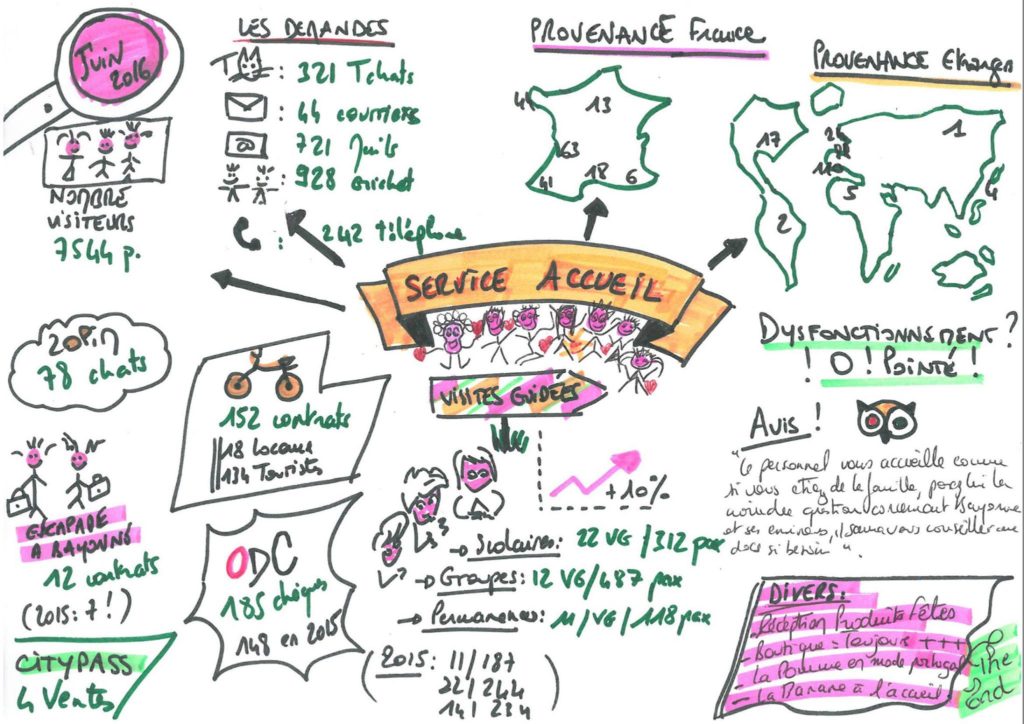 Juin
2016
NOMBRE
VISITEURS
7544 p.
LES DEMANDES
T : 321 Tchats
: 44 courriers
@ : 721 Mails
: 928 Guichet
: 242 téléphone
PROVENANCE France
4
13
63
41
18
6
PROVENANCE Etranger
17
2
1
5
4
SERVICE ACCUEIL
VISITES GUIDÉES
+10%
→ Scolaires: 22 VG / 312 pax
→ Groupes: 12 VG/487 pax
→ Permanences: 11/VG/118 pax
(2015: 11/187
22/244
14/234)
ZOPIM
78 chats
152 contrats
18 Locaux
134 Touristes
ESCAPADE
A BAYONNE
12 contrats
(2015: 7!)
ODC
185 chèques
148 en 2015
CITYPASS
4 Ventes
DYSFONCTIONNSMENT?
! 0 ! Pointé !
Avis !
"Le personnel vous accueille comme
si vous étiez de la famille,
moindre question concernant Bayonne
et ses environs, il saura vous conseiller
docs si besoin".
DIVERS:
- Réception Produits Fêtes
- Boutique = Toujours +++
- La Pomme en mode portugal
- La Banane à l'accueil
The
End